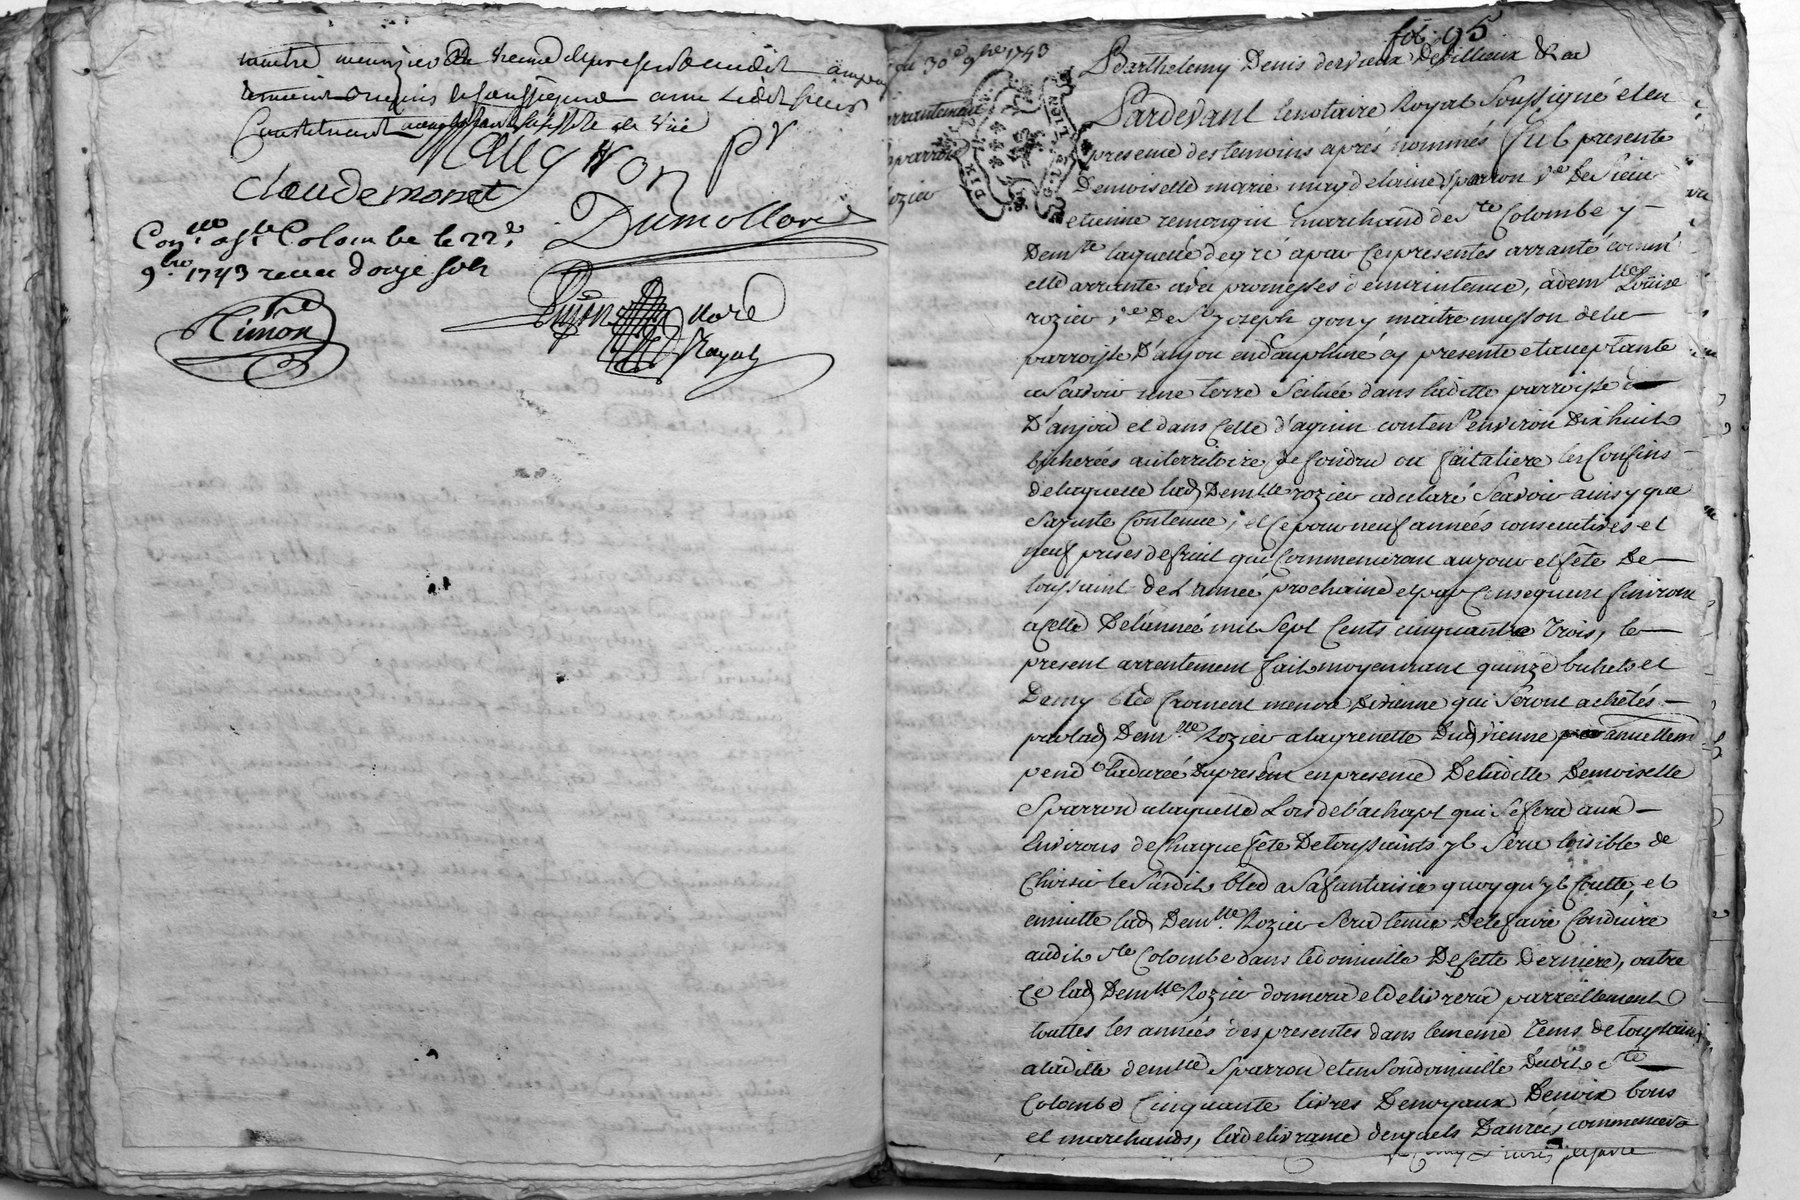 maitre meunzier de vienne
Constituant
Maugiron pr
Claudemonet
Dumollard
Conlle a Ste Colombe le 22e
9bre 1743 receu douze sols
Simon
Nore
Royal
fol. 95
du 30e 9bre 1743
arrantement
Sparron
Rozier
Barthelemy Denis dervieux Devillieux &ca
Pardevant le notaire Royal Soussigné et en
presence des temoins aprés nommés fut presente
Demoiselle marie magdelaine Sparron ve De Sieur
etienne remongin marchand de Ste Colombe y
Demte laquelle de gré a par ces presentes arranté comm'
elle arrante avec promesses de maintenue, a demlle Loüise
rozier ve De Sr joseph gony maitre masson de la
parroisse D'anjou en dauphiné cy presente et acceptante
a Scavoir une terre Scituée dans laditte parroisse
D'anjou et dans celle d'agnin conten' environ Dix huit
bicherées au territoire de ou faitaliere les Confins
de laquelle lad. Demlle rozier a declaré Scavoir ainsy que
Sa juste Contenue; et ce pour neuf années consecutives et
neuf prises de fruit qui Commenceront au jour et fête De
toussaint de L'année prochaine et par Consequent finiront
a celle De l'année mil Sept Cents cinquante Trois, le
present arrentement fait moyennant quinze bichets et
Demy bled froment mesure De vienne qui Seront achétés
par lad. Demlle Rozier a la grenette Dud. vienne annuellemt
pendt la durée Du present en presence De laditte Demoiselle
Sparron a laquelle Lors de l'achapt qui Se fera aux
Environs de Chaque fête De toussaints yl Sera loisible de
Choisir le Susdit bled a Sa fantaisie quoy qu'yl Coutte, et
ensuitte lad. Demlle Rozier Sera tenue De le faire Conduire
audit Ste Colombe dans le domicille De cette Derniere, outre
Ce lad. Demlle Rozier donnera et delivrera parreillement
touttes les années des presentes dans le meme Tems de toussaint
a laditte demlle Sparron et en Son domicille Dudit Ste
Colombe Cinquante livres De noyaux De noix bons
et marchands, la delivrance desquels Danrées commencera